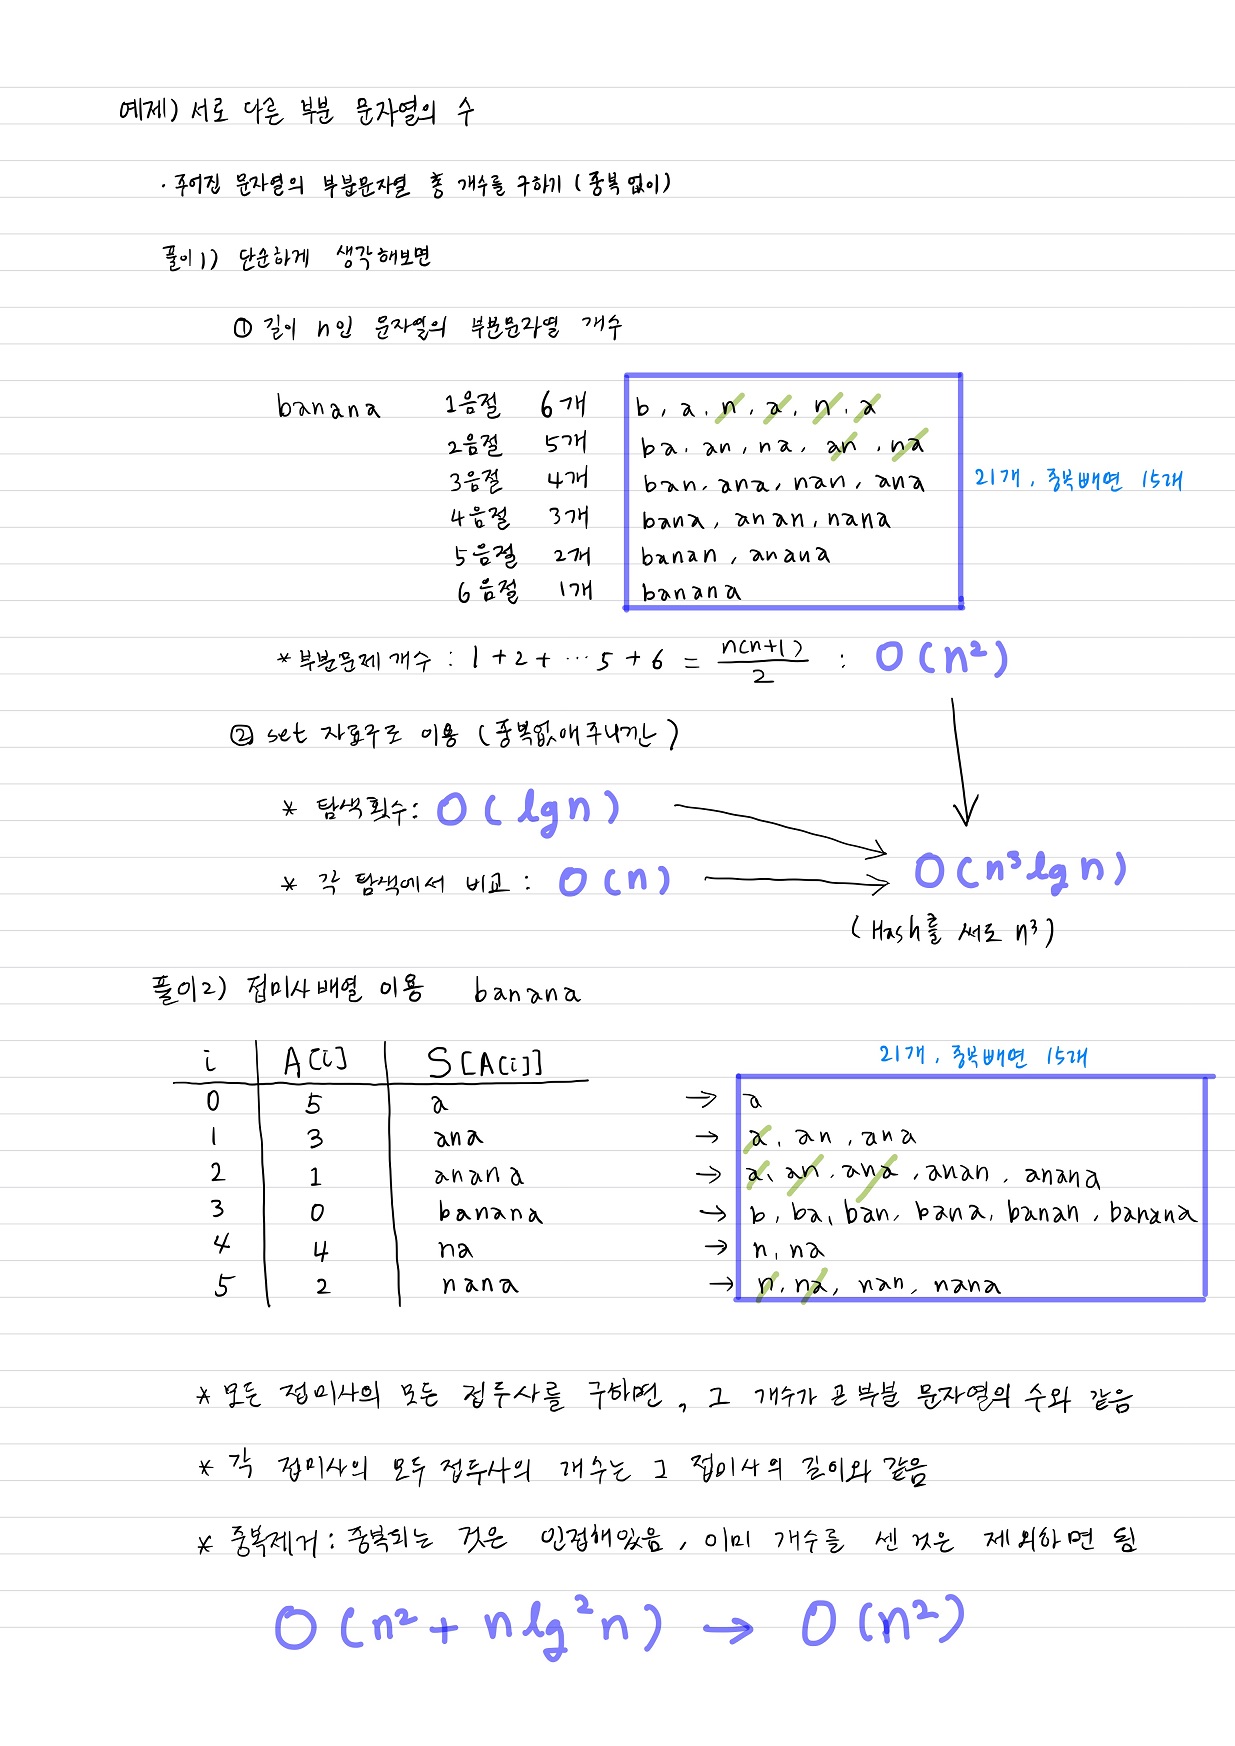 예제) 서로 다른 부분 문자열의 수
· 주어진 문자열의 부분문자열 총 개수를 구하기 (중복없이)
풀이1) 단순하게 생각해보면
① 길이 n인 문자열의 부분문자열 개수
banana 1음절 6개 b, a, n, a, n, a
2음절 5개 ba, an, na, an, na
3음절 4개 ban, ana, nan, ana 21개, 중복빼면 15개
4음절 3개 bana, anan, nana
5음절 2개 banan, anana
6음절 1개 banana
* 부분문제 개수 : 1+2+ ⋯ 5+6 = n(n+1)/2 : O(n²)
② set 자료구조 이용 (중복없애주니깐)
* 탐색횟수: O(lgn)
* 각 탐색에서 비교 : O(n) O(n³lgn)
(Hash를 써도 n³)
풀이2) 접미사배열 이용 banana
i A[i] S[A[i]] 21개, 중복빼면 15개
0 5 a → a
1 3 ana → a, an, ana
2 1 anana → a, an, ana, anan, anana
3 0 banana → b, ba, ban, bana, banan, banana
4 4 na → n, na
5 2 nana → n, na, nan, nana
* 모든 접미사의 모든 접두사를 구하면, 그 개수가 곧 부분 문자열의 수와 같음
* 각 접미사의 모두 접두사의 개수는 그 접미사의 길이와 같음
* 중복제거 : 중복되는 것은 인접해있음, 이미 개수를 센 것은 제외하면 됨
O(n² + nlg²n) → O(n²)